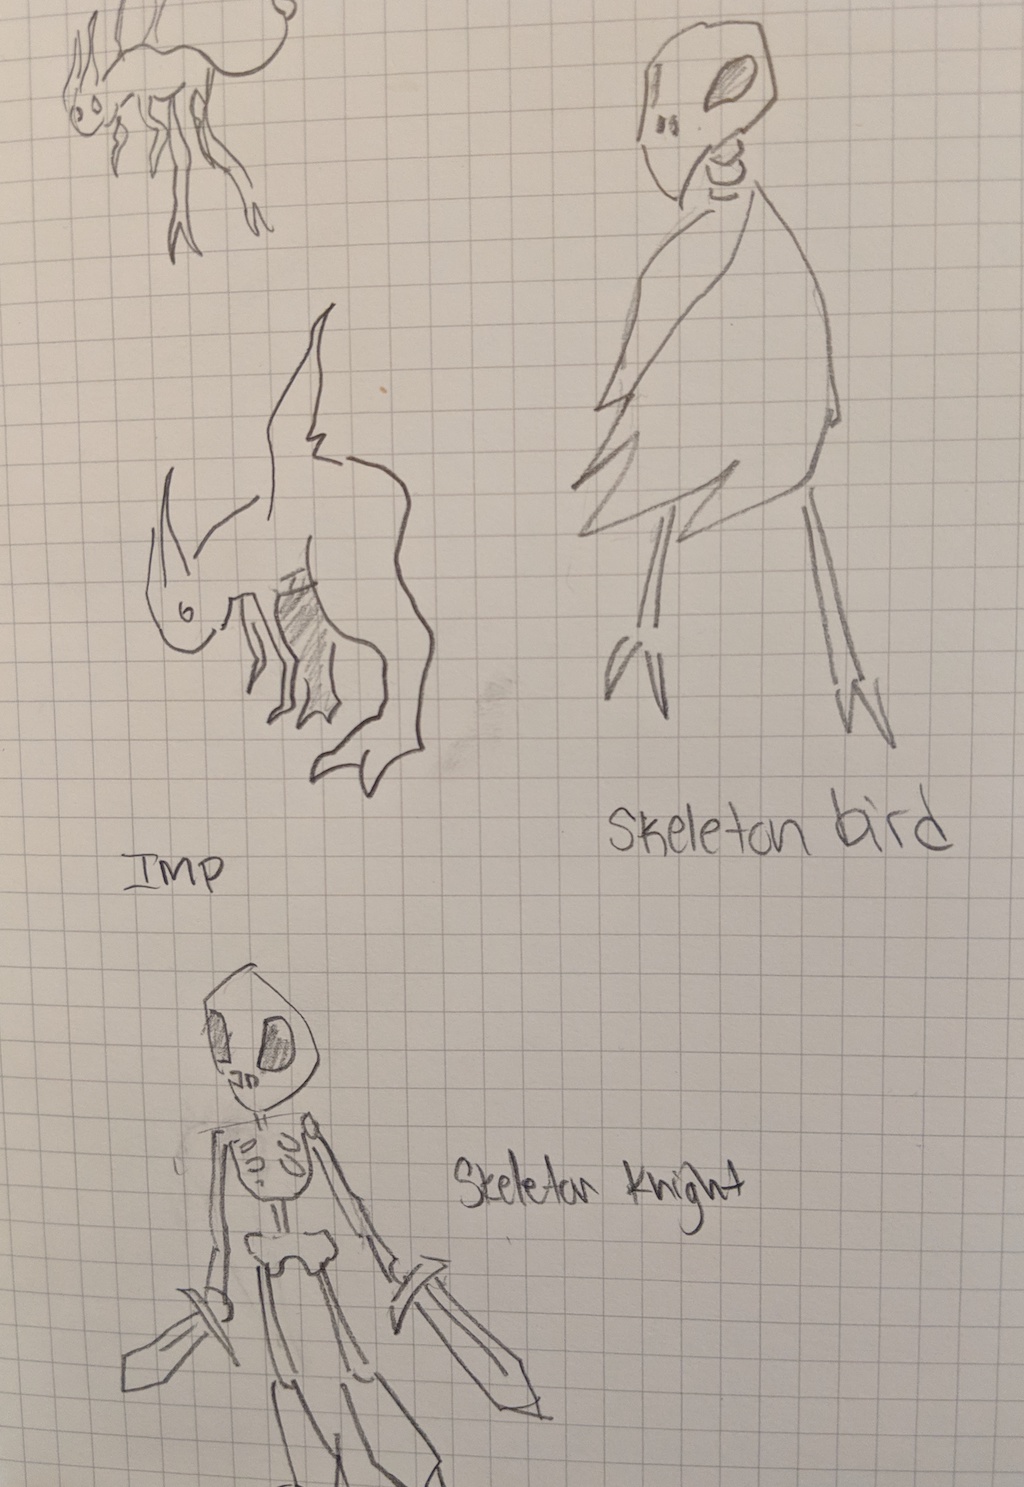 Skeleton bird
Imp
Skeleton Knight